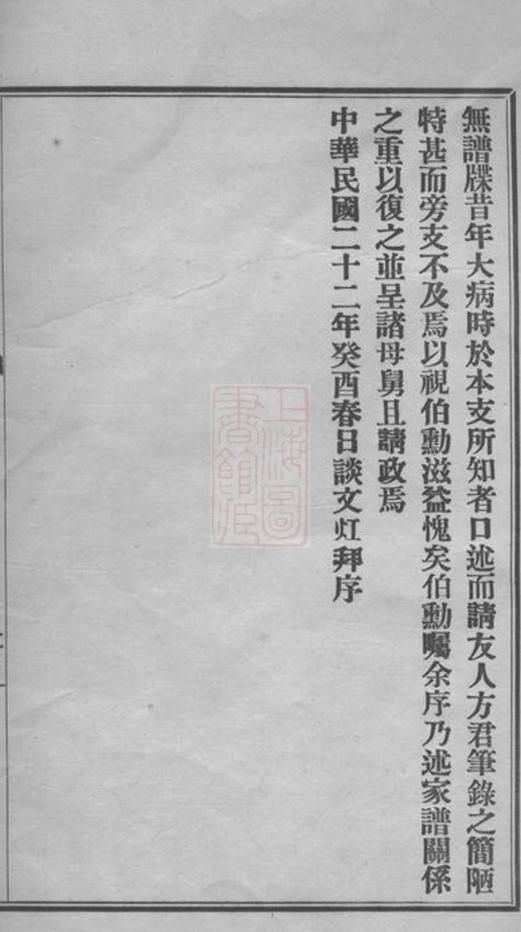 無譜牒昔年大病時於本支所知者口述而請友人方君筆錄之簡陋
特甚而旁支不及焉以視伯勳滋益愧矣伯勳囑余序乃述家譜關係
之重以復之並呈諸母舅且請政焉
中華民國二十二年癸酉春日談文灴拜序
上海圖
書館藏